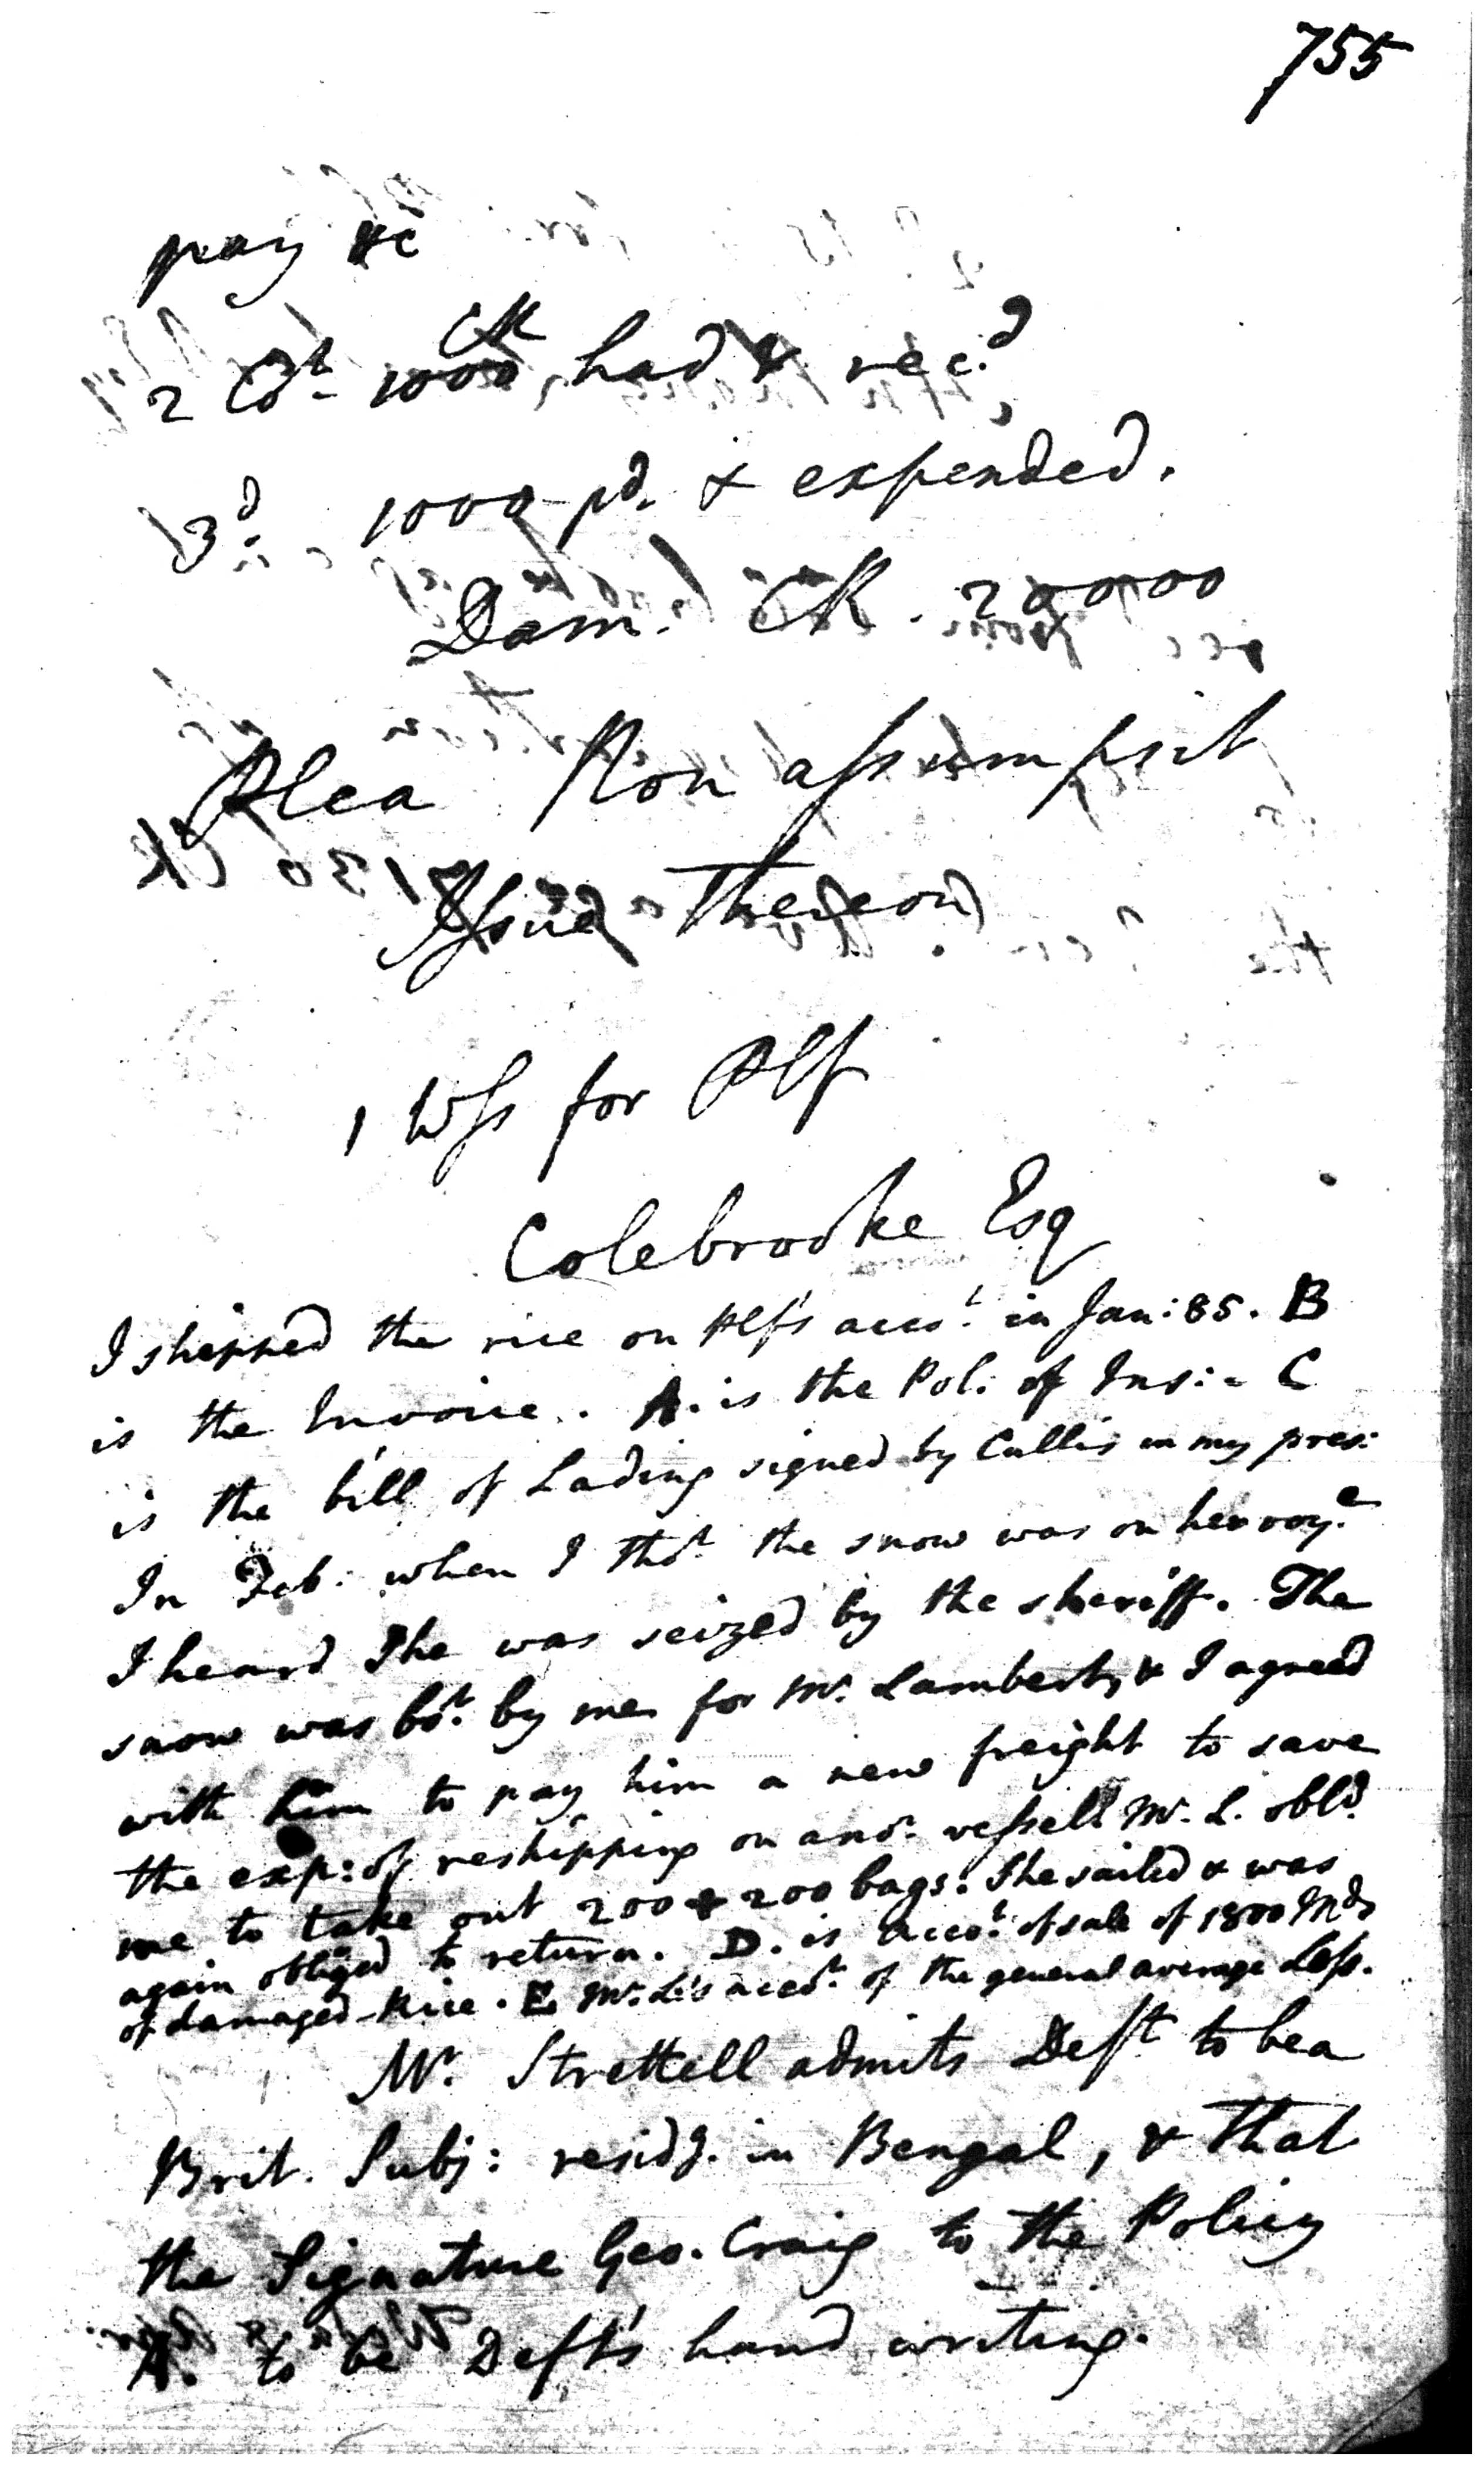 755
pay &c
2 Cot. CR 1000 had & rec.d
3d. 1000 pd. & expended.
Dam. CR. 20000
Plea Non assumpsit
Issue Thereon
1 Wss for Plf
Colebrooke Esq
I shipped the rice on Plf's acco.t in Jan: 85. B
is the Invoice. A. is the Pol: of Ins: - C
is the bill of Lading signed by Cullis in my pres:
In Feb: when I tho.t the snow was on her voy.e
I heard She was seized by the sheriff. The
snow was bo.t by me for Mr. Lambert, & I agreed
with him to pay him a new freight to save
the exp: of reshipping on ano.r vessell Mr. L. obld.
me to take out 200 & 200 bags. She sailed & was
again obliged to return. D. is Acco.t of sale of 1800 Mds
of damaged Rice. E Mr. L's acco.t of the general average Loss.
Mr. Strettell admits Deft to be a
Brit. Subj: residg. in Bengal, & that
the Signature Geo. Craig to the Policy
A. to be Deft's hand writing.